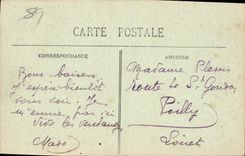 89
CARTE POSTALE
CORRESPONDANCE
ADRESSE
Bons baisers
J'espère bientôt
vous voir. Je
m'ennuie par ici
Vive les vendanges
Mado
Madame
route de St Gondon
Poilly
Loiret